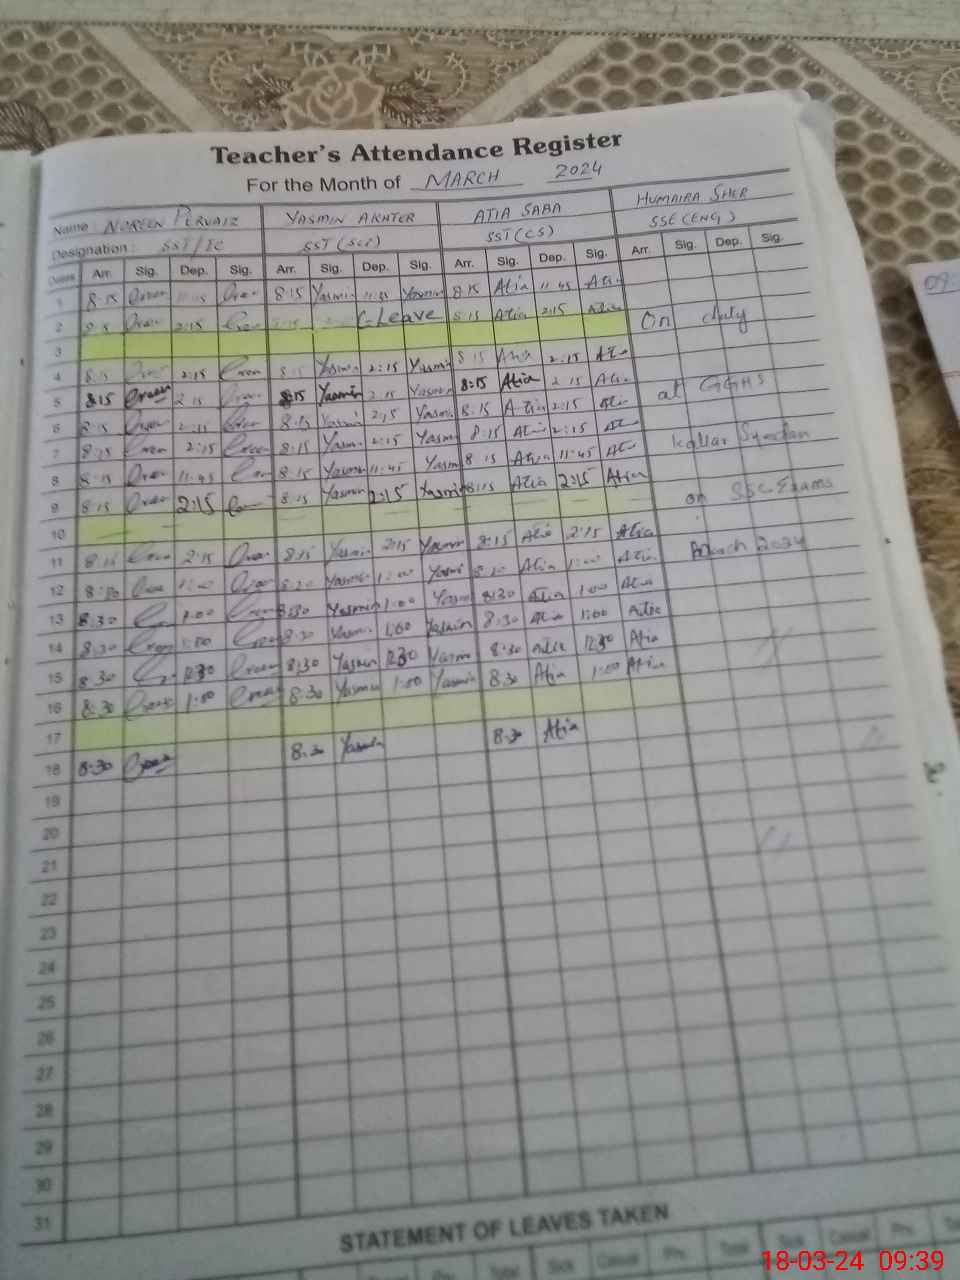 Teacher's Attendance Register
For the Month of MARCH 2024
Name : NOREEN PERVAIZ YASMIN AKHTER ATIA SABA HUMAIRA SHER
Designation : SST/IC SST (Sci) SST (CS) SSE (ENG)
Dates Arr. Sig. Dep. Sig. Arr. Sig. Dep. Sig. Arr. Sig. Dep. Sig. Arr. Sig. Dep. Sig.
1 8:15 11:45 8:15 Yasmin Yasmin 8:15 Atia 11:45 Atia
2 2:15 C-Leave 8:15 Atia 2:15 Atia On duty
3
4 8:15 2:15 8:15 Yasmin 2:15 Yasmin 8:15 Atia 2:15 Atia
5 8:15 2:15 8:15 Yasmin 2:15 Yasmin 8:15 Atia 2:15 Atia at GGHS
6 8:15 2:15 8:15 Yasmin 2:15 Yasmin 8:15 Atia 2:15 Atia
7 8:15 2:15 8:15 Yasmin 2:15 Yasmin 8:15 Atia 2:15 Atia Kallar Syedan
8 8:15 11:45 8:15 Yasmin 11:45 Yasmin 8:15 Atia 11:45 Atia
9 8:15 2:15 8:15 Yasmin 2:15 Yasmin 8:15 Atia 2:15 Atia on SSC Exams
10
11 8:15 2:15 8:15 Yasmin 2:15 Yasmin 8:15 Atia 2:15 Atia March 2024
12 8:30 1:00 8:30 Yasmin 1:00 Yasmin 8:30 Atia 1:00 Atia
13 8:30 1:00 8:30 Yasmin 1:00 Yasmin 8:30 Atia 1:00 Atia
14 8:30 1:00 8:30 Yasmin 1:00 Yasmin 8:30 Atia 1:00 Atia
15 8:30 12:30 8:30 Yasmin 12:30 Yasmin 8:30 Atia 12:30 Atia
16 8:30 1:00 8:30 Yasmin 1:00 Yasmin 8:30 Atia 1:00 Atia
17
18 8:30 8:30 Yasmin 8:30 Atia
19
20
21
22
23
24
25
26
27
28
29
30
31
STATEMENT OF LEAVES TAKEN
Total Sick Casual Prv. Total Sick Casual Prv.
18-03-24 09:39